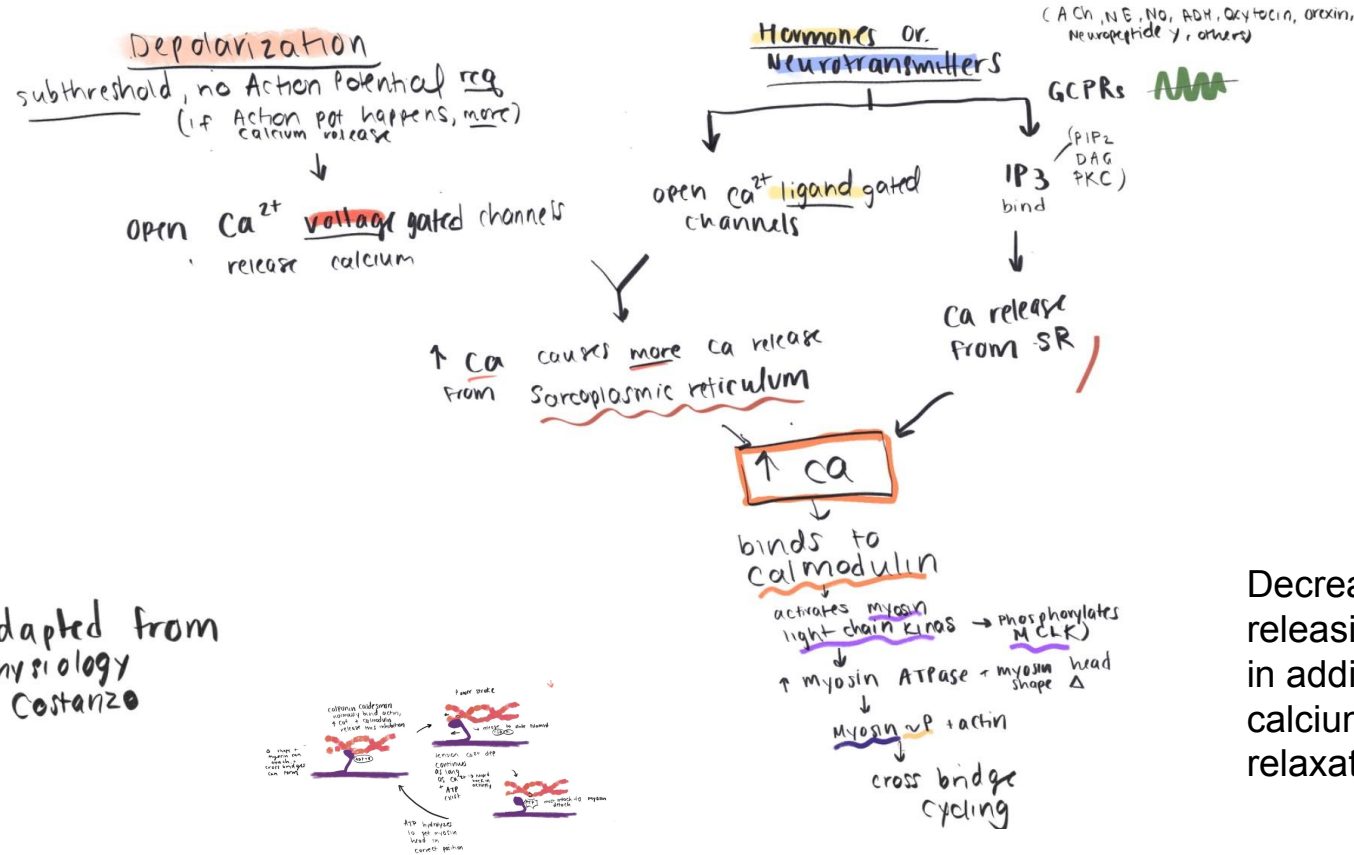 Depolarization
subthreshold, no Action Potential req
(if Action pot happens, more)
calcium release
open Ca2+ voltage gated channels
release calcium
Hormones or.
Neurotransmitters
(ACh, NE, No, ADH, Oxytocin, orexin,
Neuropeptide y, others)
GCPRs
open Ca2+ ligand gated
channels
IP3
bind
(PIP2
DAG
PKC)
Ca release
from SR
↑ Ca causes more Ca release
from Sarcoplasmic reticulum
↑ Ca
binds to
Calmodulin
activates myosin
light chain kinas → Phosphorylates
MCLK)
↑ myosin ATPase + myosin head
shape Δ
Myosin ~P + actin
cross bridge
cycling
dapted from
hysiology
Costanzo
Decrea
releasi
in addi
calciun
relaxat
Power stroke
normally bind actin,
release this inhibition
Δ shape +
myosin can
attach,
cross bridges
can form
continue
as long
as Ca2+
+ ATP
exist
myosin
detach
ATP hydrolyzes
to get myosin
head in
correct position